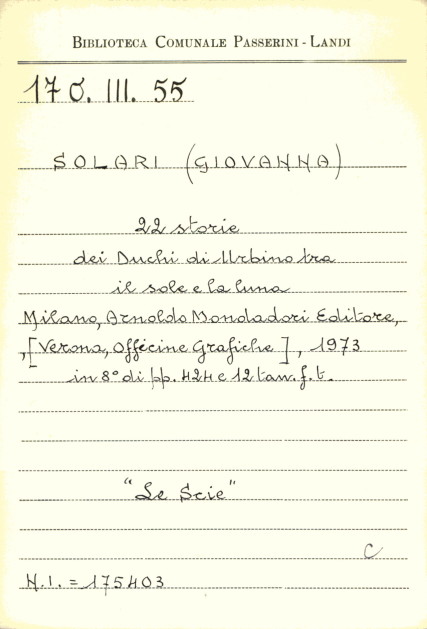 BIBLIOTECA COMUNALE PASSERINI - LANDI
17 O. III. 55
SOLARI (GIOVANNA)
22 storie
dei Duchi di Urbino tra
il sole e la luna
Milano, Arnoldo Mondadori Editore,
,[Verona, Officine Grafiche], 1973
in 8° di pp. 424 e 12 tav. f. t.
"Le Scie"
C
N.I. = 175403